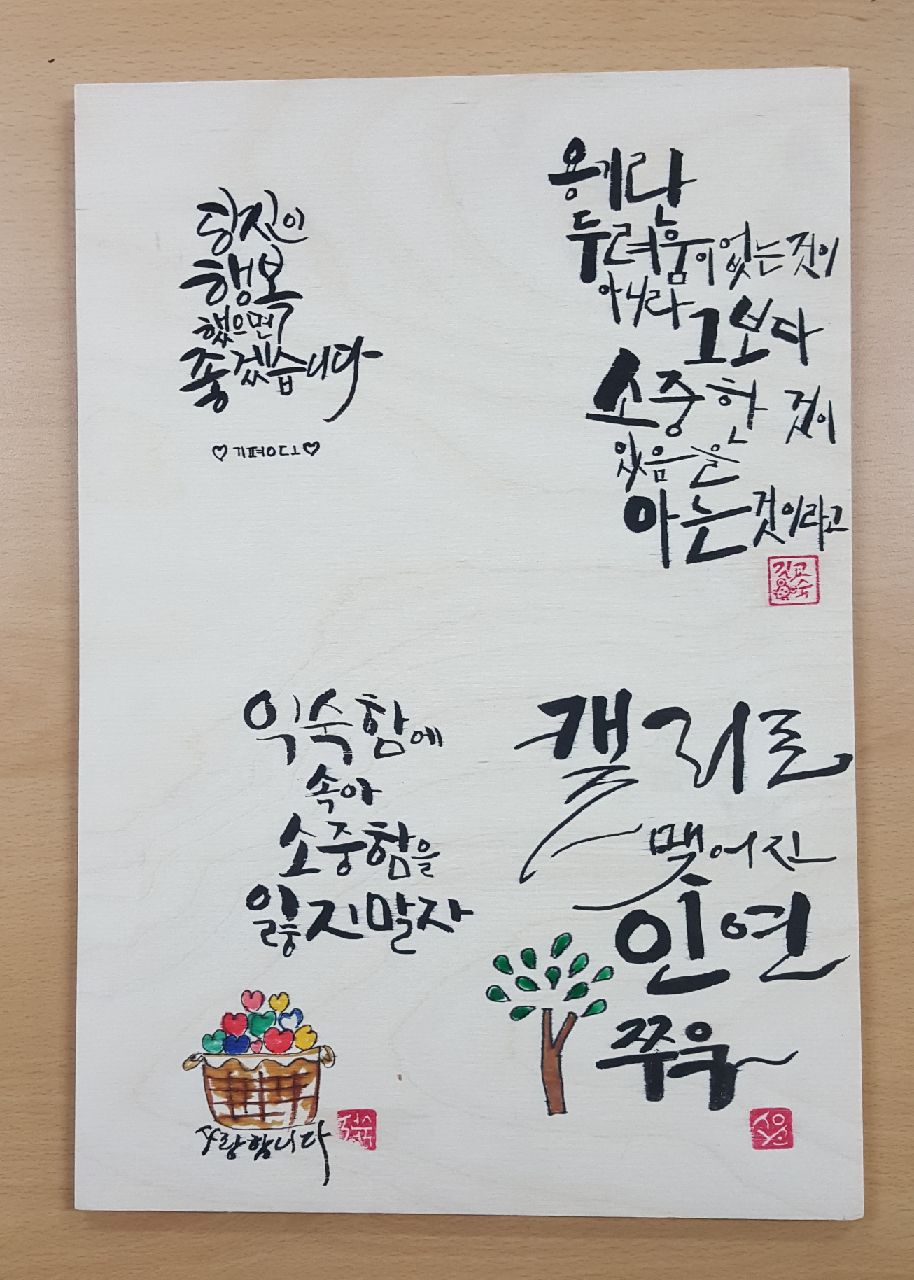 당신이
행복
했으면
좋겠습니다
용기란
두려움이 없는 것이
아니라 그보다
소중한 것이
있음을
아는 것이라고
익숙함에
속아
소중함을
잃지말자
사랑합니다
캘리로
맺어진
인연
쭈욱